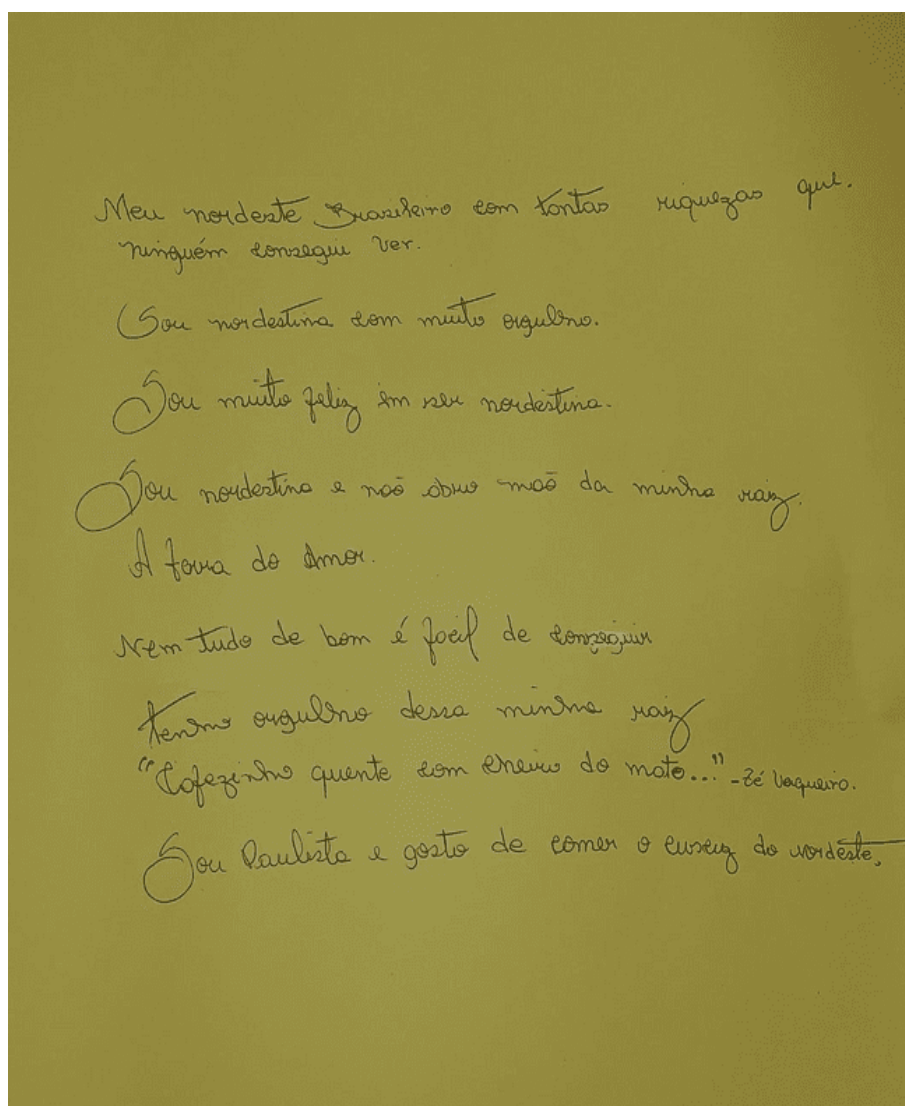 Meu nordeste Brasileiro com tantas riquezas que.
ninguém consegui ver.
Sou nordestina com muito orgulho.
Sou muito feliz em ser nordestina.
Sou nordestina e naõ abro maõ da minha raiz.
A do Amor.
Nem tudo de bom é facil de conseguir
tenho orgulho dessa minha raiz
"Cafezinho quente com cheiro do mato..." - Zé Vaqueiro.
Sou Paulista e gosto de comer o cuscuz do nordeste.